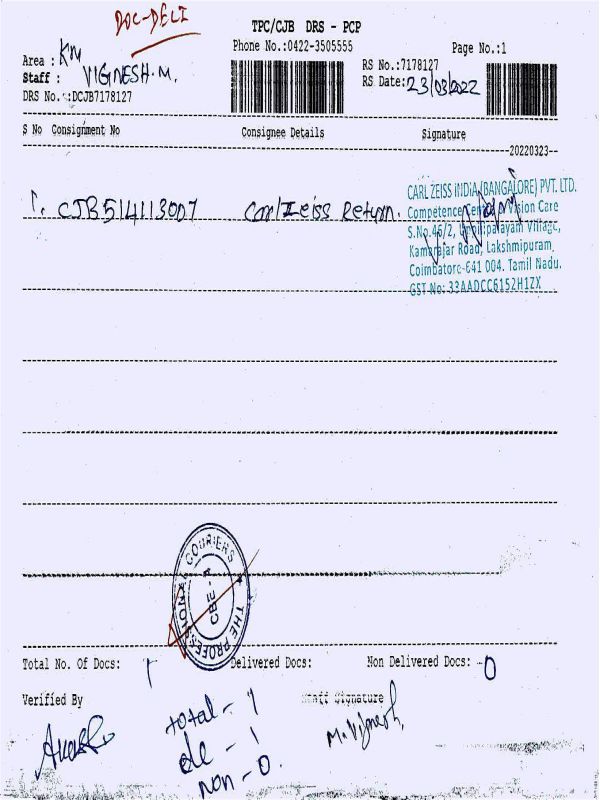 DOC-DELI
TPC/CJB DRS - PCP
Phone No.:0422-3505555
Page No.:1
Area : KM
RS No.:7178127
Staff : VIGNESH.M.
RS Date: 23/03/2022
DRS No. :DCJB7178127
S No Consignment No Consignee Details Signature
20220323
1. CJB514113007 CarlZeiss Return.
CARL ZEISS INDIA (BANGALORE) PVT. LTD.
Competence Vision Care
S.No.46/2, Village,
Kamarajar Road, Lakshmipuram,
Coimbatore-641 004. Tamil Nadu.
GST No: 33AADCC6152H1ZX
THE PROFESSIONAL COURIERS
CBE-A
Total No. Of Docs: 1 Delivered Docs: Non Delivered Docs: -0
Verified By Staff Signature
total - 1
de - 1
non - 0.
M. Vignesh